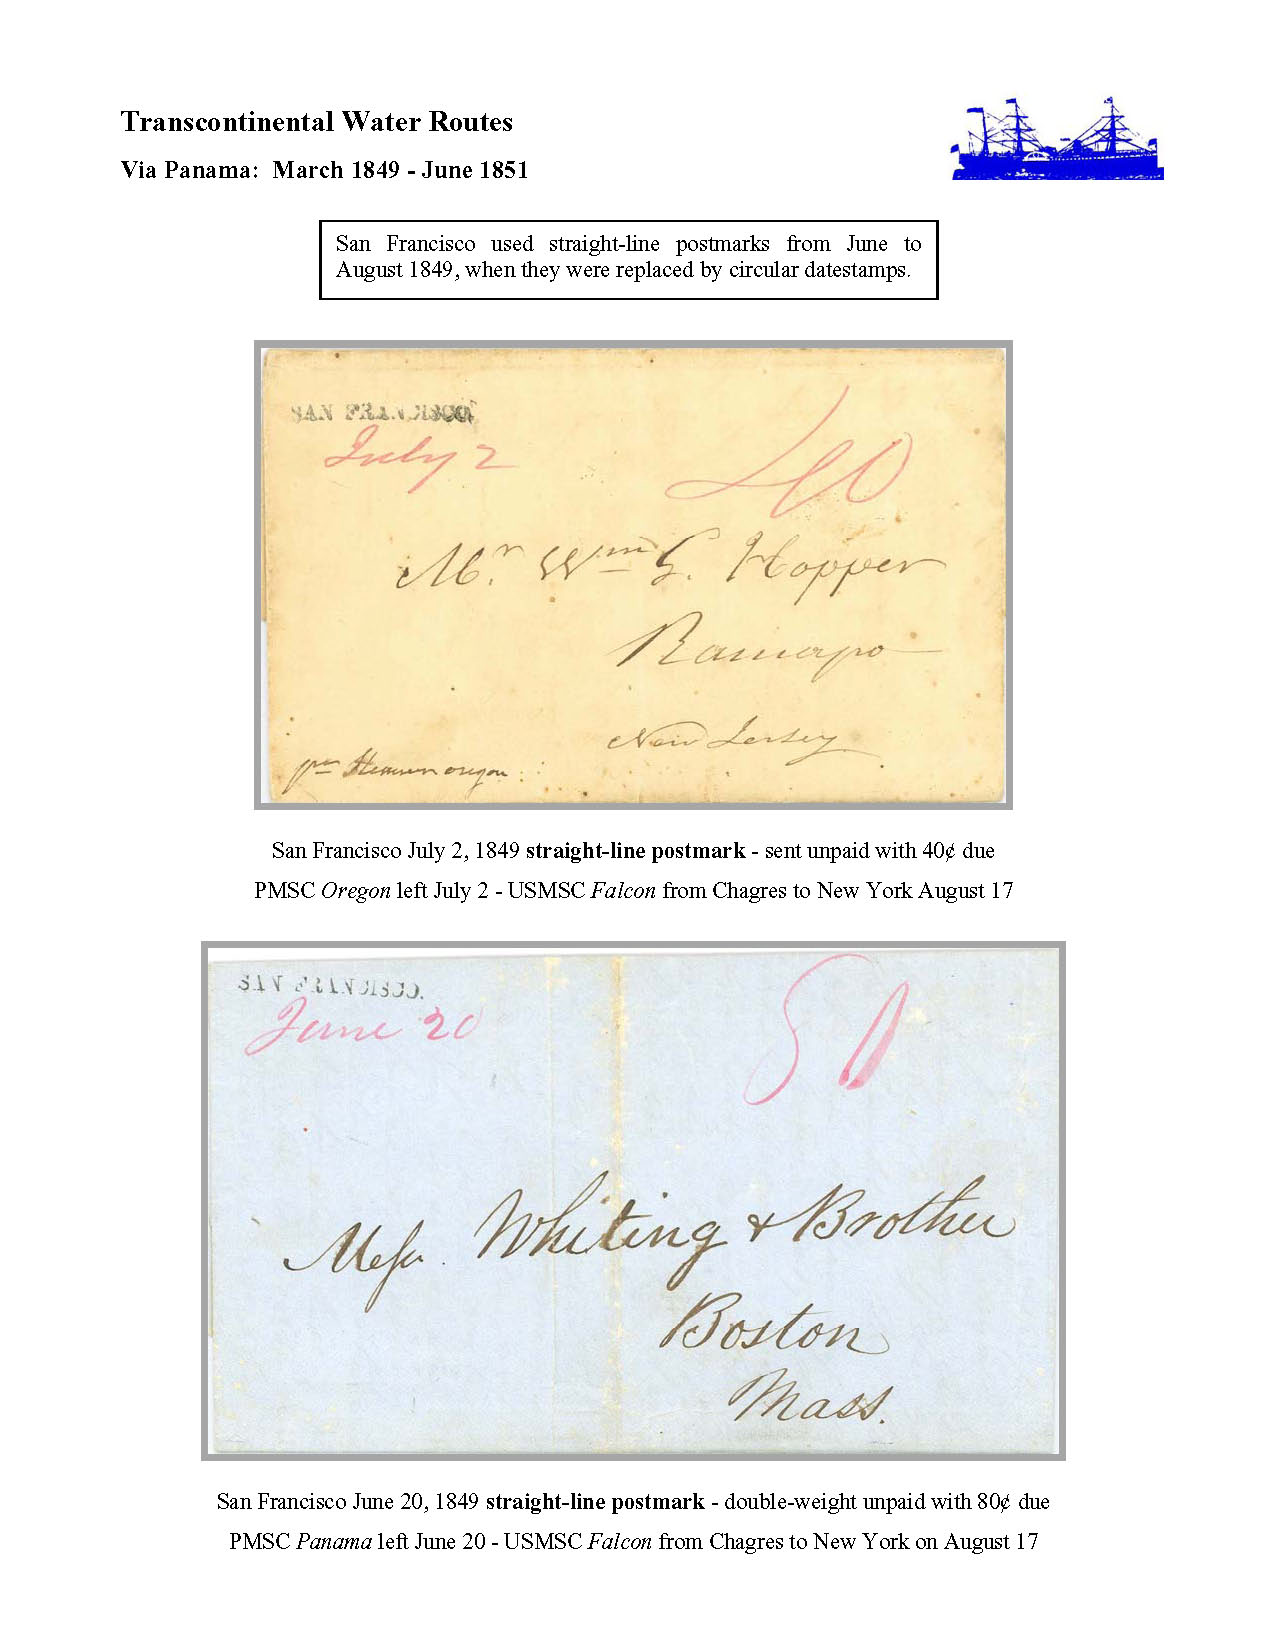 Transcontinental Water Routes
Via Panama:  March 1849 - June 1851
San Francisco used straight-line postmarks from June to
August 1849, when they were replaced by circular datestamps.
SAN FRANCISCO
July 2
40
Mr. Wm G. Hopper
Ramapo
New Jersey
per Steamer oregon
San Francisco July 2, 1849 straight-line postmark - sent unpaid with 40¢ due
PMSC Oregon left July 2 - USMSC Falcon from Chagres to New York August 17
SAN FRANCISCO.
June 20
80
Messr. Whiting & Brother
Boston
Mass.
San Francisco June 20, 1849 straight-line postmark - double-weight unpaid with 80¢ due
PMSC Panama left June 20 - USMSC Falcon from Chagres to New York on August 17